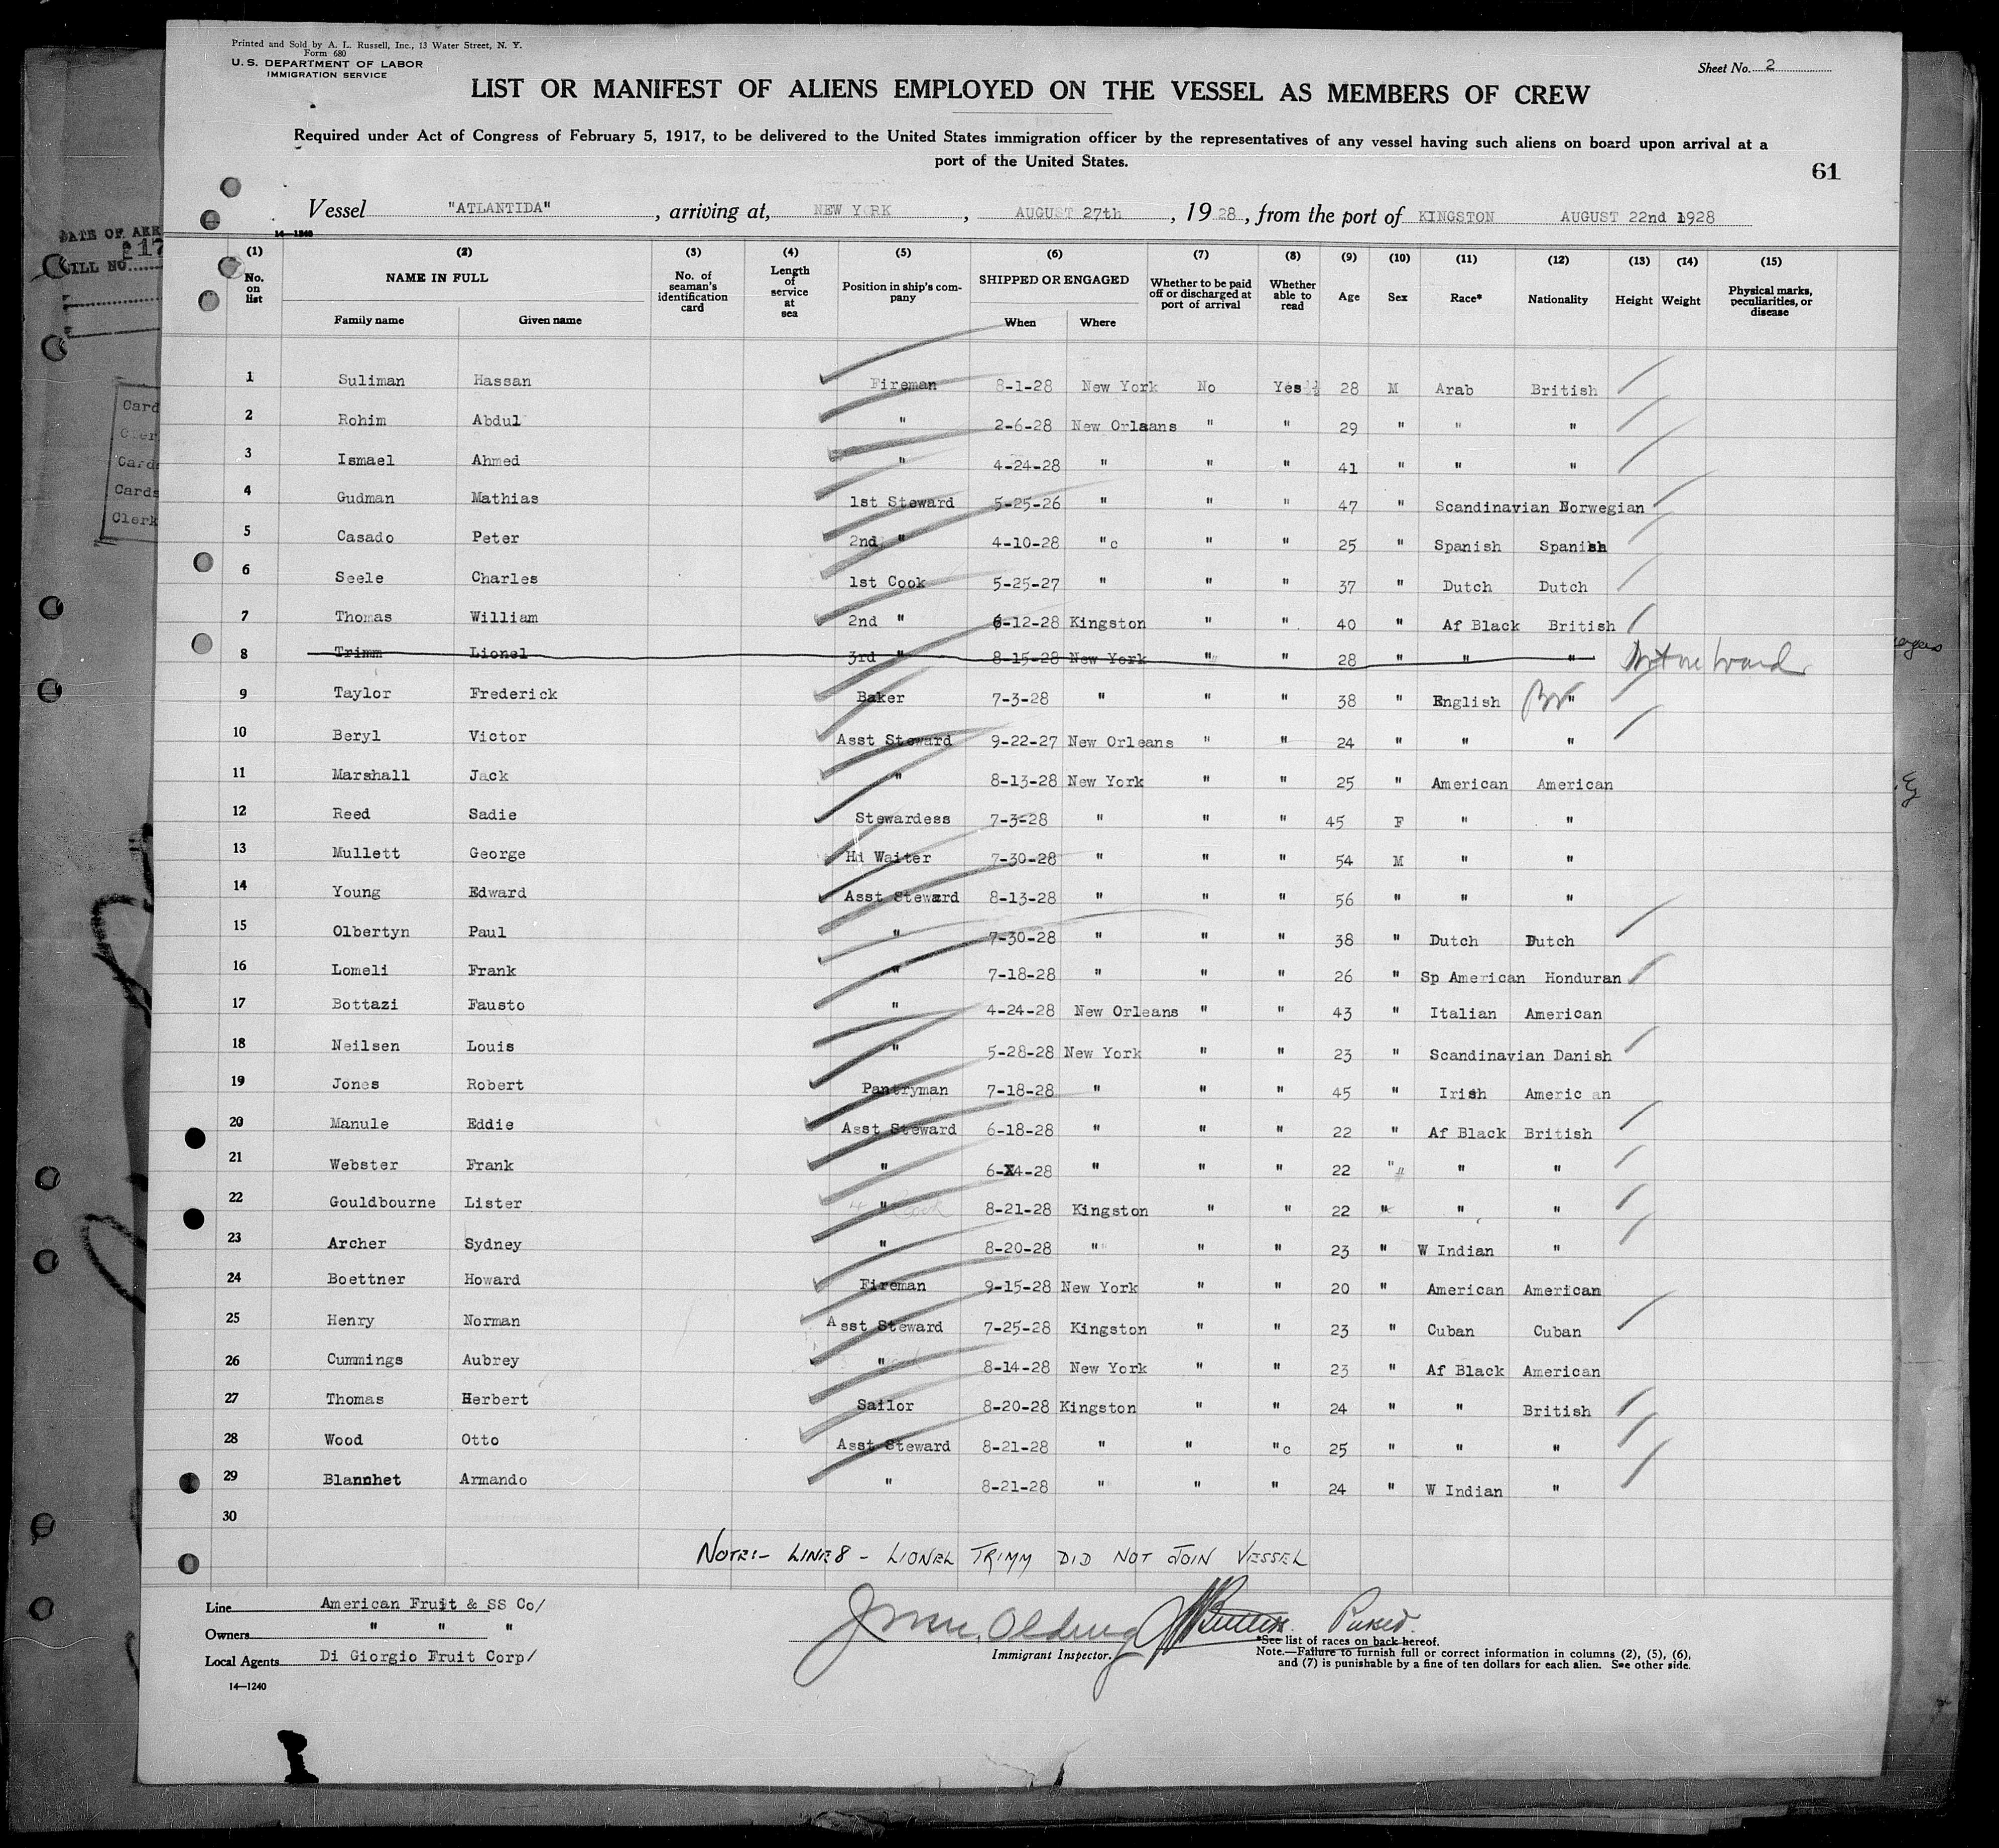 Printed and Sold by A. L. Russell, Inc., 13 Water Street, N. Y.
Form 680
U. S. DEPARTMENT OF LABOR
IMMIGRATION SERVICE
Sheet No. 2
LIST OR MANIFEST OF ALIENS EMPLOYED ON THE VESSEL AS MEMBERS OF CREW
Required under Act of Congress of February 5, 1917, to be delivered to the United States immigration officer by the representatives of any vessel having such aliens on board upon arrival at a
port of the United States.
61
Vessel "ATLANTIDA", arriving at, NEW YORK, AUGUST 27th, 1928, from the port of KINGSTON AUGUST 22nd 1928
14—1240
(1) (2) (3) (4) (5) (6) (7) (8) (9) (10) (11) (12) (13) (14) (15)
No. on list NAME IN FULL Family name Given name No. of seaman's identification card Length of service at sea Position in ship's company SHIPPED OR ENGAGED When Where Whether to be paid off or discharged at port of arrival Whether able to read Age Sex Race* Nationality Height Weight Physical marks, peculiarities, or disease
1 Suliman Hassan Fireman 8-1-28 New York No Yes 28 M Arab British
2 Rohim Abdul " 2-6-28 New Orlaans " " 29 " " "
3 Ismael Ahmed " 4-24-28 " " " 41 " " "
4 Gudman Mathias 1st Steward 5-25-26 " " " 47 " Scandinavian Norwegian
5 Casado Peter 2nd " 4-10-28 "c " " 25 " Spanish Spanish
6 Seele Charles 1st Cook 5-25-27 " " " 37 " Dutch Dutch
7 Thomas William 2nd " 6-12-28 Kingston " " 40 " Af Black British
8 Trimm Lionel 3rd " 8-15-28 New York " " 28 " " " Not on board
9 Taylor Frederick Baker 7-3-28 " " " 38 " English Br "
10 Beryl Victor Asst Steward 9-22-27 New Orleans " " 24 " " "
11 Marshall Jack " 8-13-28 New York " " 25 " American American
12 Reed Sadie Stewardess 7-3-28 " " " 45 F " "
13 Mullett George Hd Waiter 7-30-28 " " " 54 M " "
14 Young Edward Asst Steward 8-13-28 " " " 56 " " "
15 Olbertyn Paul " 7-30-28 " " " 38 " Dutch Dutch
16 Lomeli Frank " 7-18-28 " " " 26 " Sp American Honduran
17 Bottazi Fausto " 4-24-28 New Orleans " " 43 " Italian American
18 Neilsen Louis " 5-28-28 New York " " 23 " Scandinavian Danish
19 Jones Robert Pantryman 7-18-28 " " " 45 " Irish Americ an
20 Manule Eddie Asst Steward 6-18-28 " " " 22 " Af Black British
21 Webster Frank " 6-14-28 " " " 22 " " "
22 Gouldbourne Lister " 8-21-28 Kingston " " 22 " " "
23 Archer Sydney " 8-20-28 " " " 23 " W Indian "
24 Boettner Howard Fireman 9-15-28 New York " " 20 " American American
25 Henry Norman Asst Steward 7-25-28 Kingston " " 23 " Cuban Cuban
26 Cummings Aubrey " 8-14-28 New York " " 23 " Af Black American
27 Thomas Herbert Sailor 8-20-28 Kingston " " 24 " " British
28 Wood Otto Asst Steward 8-21-28 " " "c 25 " " "
29 Blannhet Armando " 8-21-28 " " " 24 " W Indian "
30
NOTE:- LINE 8 - LIONEL TRIMM DID NOT JOIN VESSEL
Line American Fruit & SS Co/
Owners " " "
Local Agents Di Giorgio Fruit Corp/
14—1240
Immigrant Inspector.
*See list of races on back hereof.
Note.—Failure to furnish full or correct information in columns (2), (5), (6),
and (7) is punishable by a fine of ten dollars for each alien. See other side.